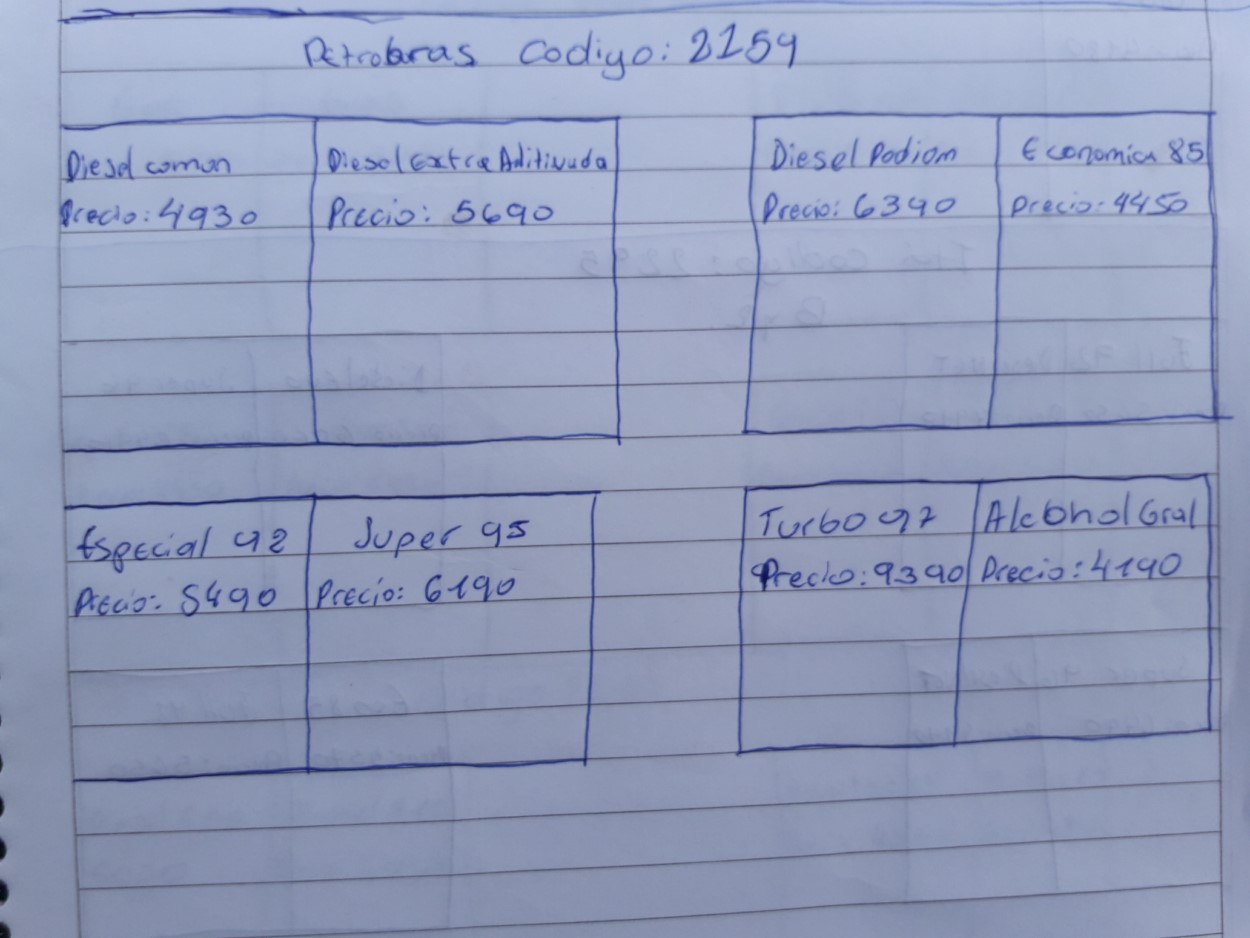 Petrobras Codigo: 2159
Diesel comun
Precio: 4930
Diesel Extra Aditivada
Precio: 5690
Diesel Podiom
Precio: 6390
Economica 85
Precio: 4450
Especial 92
Precio: 5490
Super 95
Precio: 6190
Turbo 97
Precio: 9390
Alcohol Gral
Precio: 4190